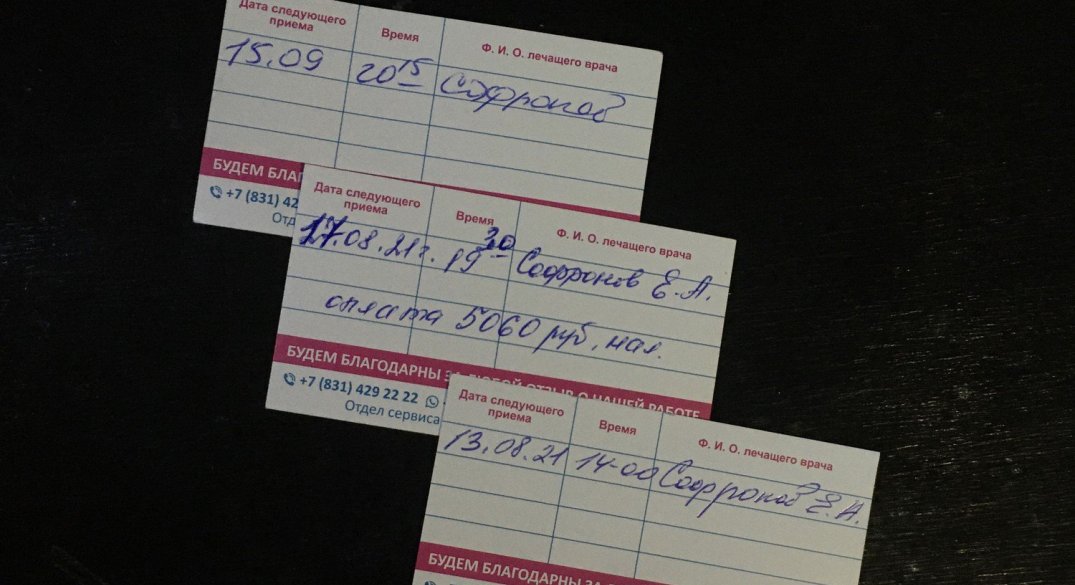 Дата следующего приема Время Ф. И. О. лечащего врача
15.09 20 15 Софронов
БУДЕМ БЛАГ
+7 (831) 42
Отд
Дата следующего приема Время Ф. И. О. лечащего врача
17.08.21г. 19 30 Софронов Е.А.
оплата 5060 руб, нал.
БУДЕМ БЛАГОДАРНЫ ЗА ЛЮБОЙ ОТЗЫВ О НАШЕЙ РАБОТЕ
+7 (831) 429 22 22
Отдел сервиса
Дата следующего приема Время Ф. И. О. лечащего врача
13.08.21 14-00 Софронов Е.А.
БУДЕМ БЛАГОДАРНЫ ЗА